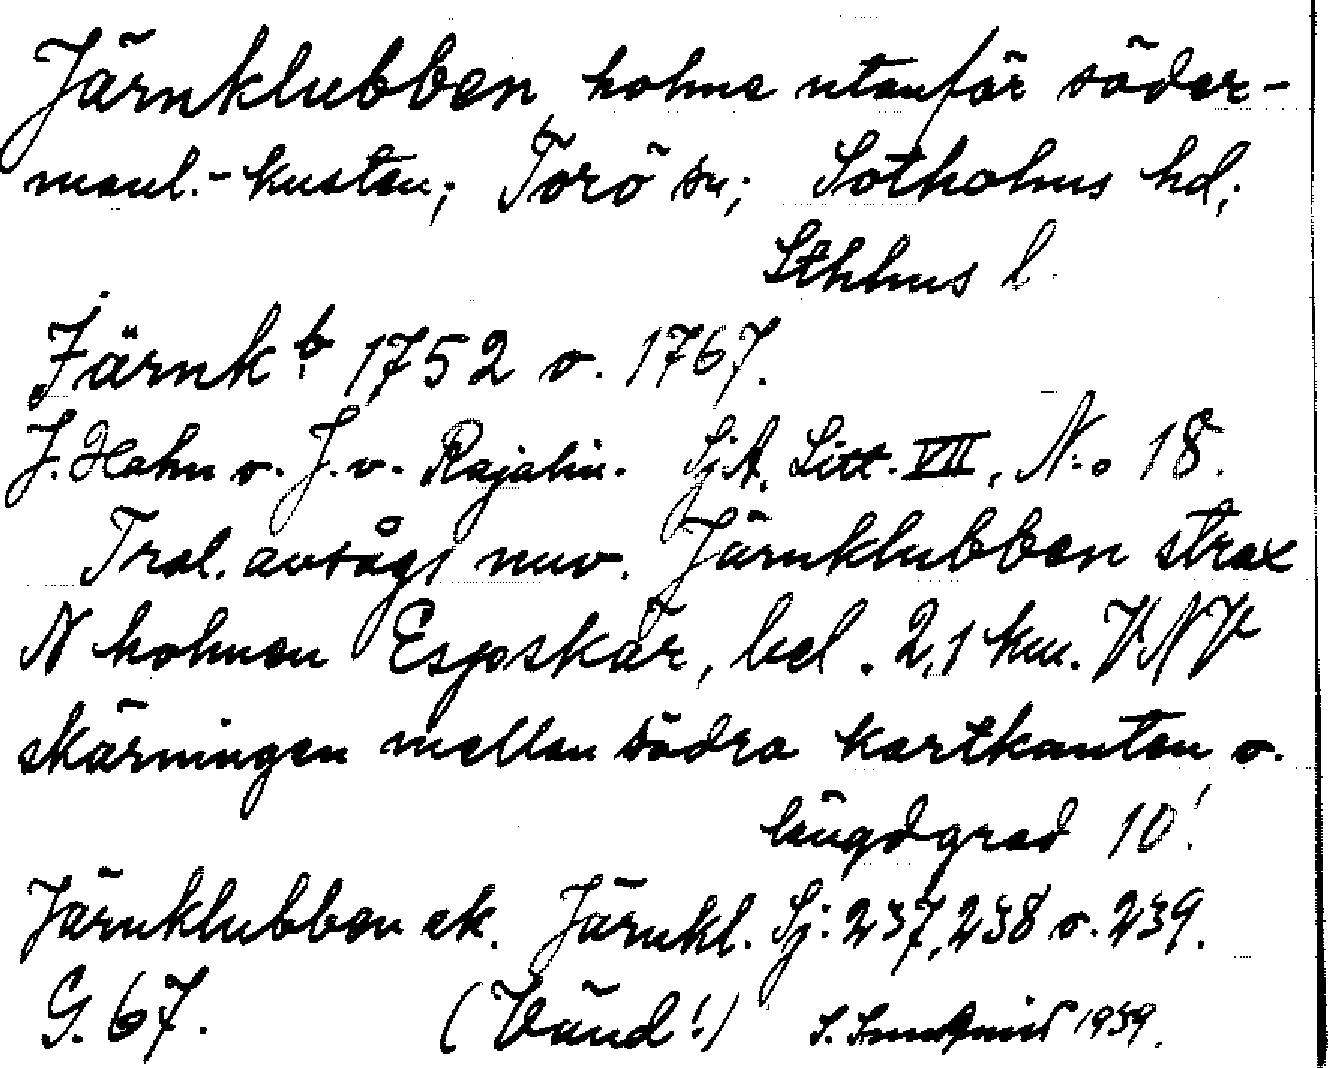 Järnklubben holme utanför söder-
manl.-kusten; Torö sn; Sotholms hd;
Sthlms l.
Järnk b. 1752 o. 1767.
J. Hahn o. J. v. Rajalin. SjA. Litt. VII, N:o 18.
Trol. avsågs nuv. Järnklubben strax
N holmen Espskär, bel. 2,1 km. VNV
skärningen mellan södra kartkanten o.
längdgrad 10'.
Järnklubben ek. Järnkl. Sj: 237, 238 o. 239.
G. 67. (Vänd!) S. 1939.